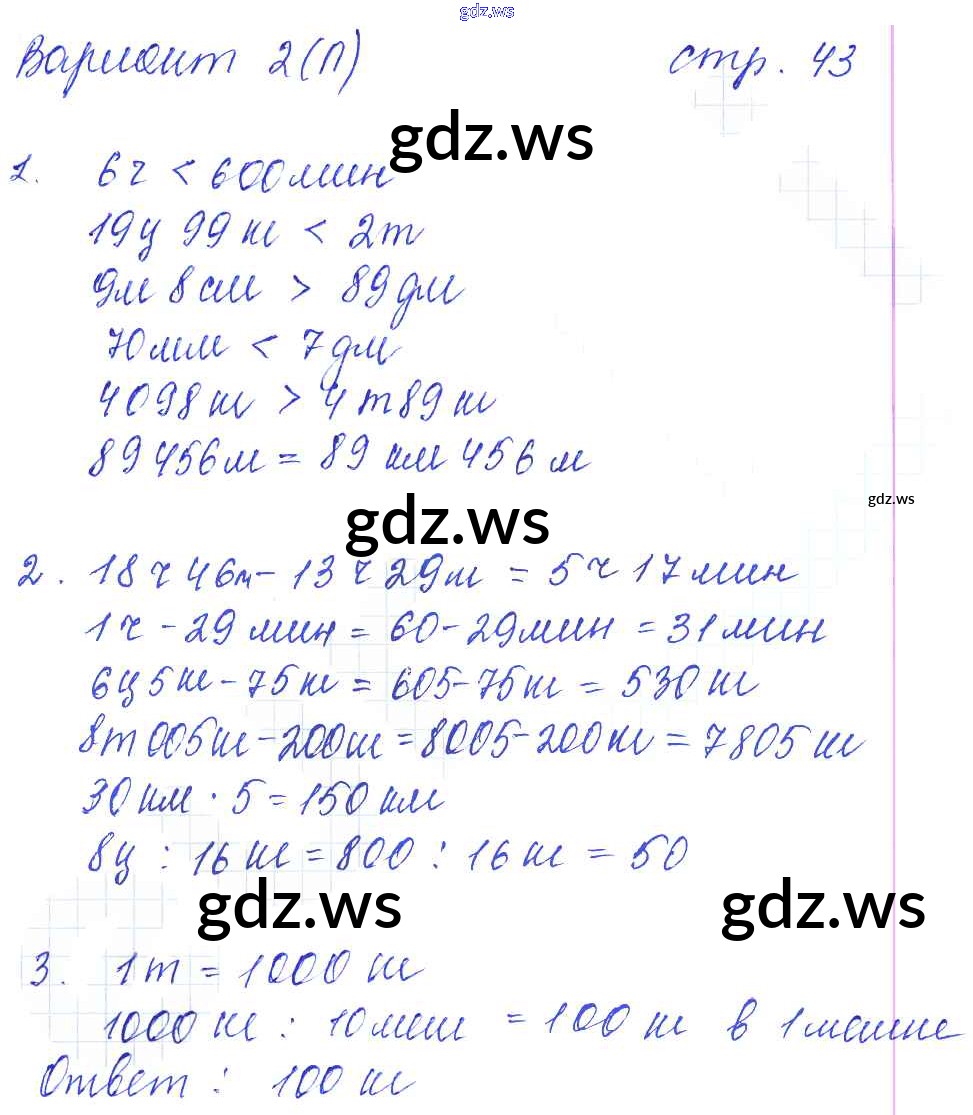 gdz.ws
Вариант 2(П) стр. 43
gdz.ws
1. 6ч < 600 мин
19ц 99 кг < 2т
9м 8 см > 89 дм
70мм < 7 дм
4098 кг > 4 т 89 кг
89456м = 89 км 456 м
gdz.ws
gdz.ws
2. 18 ч 46м - 13 ч 29м = 5ч 17 мин
1ч - 29 мин = 60 - 29 мин = 31 мин
6ц 5 кг - 75 кг = 605 - 75 кг = 530 кг
8т 005 кг - 200 кг = 8005 - 200 кг = 7805 кг
30 км · 5 = 150 км
8ц : 16 кг = 800 : 16 кг = 50
gdz.ws gdz.ws
3. 1т = 1000 кг
1000 кг : 10 меш = 100 кг в 1 мешке
Ответ : 100 кг